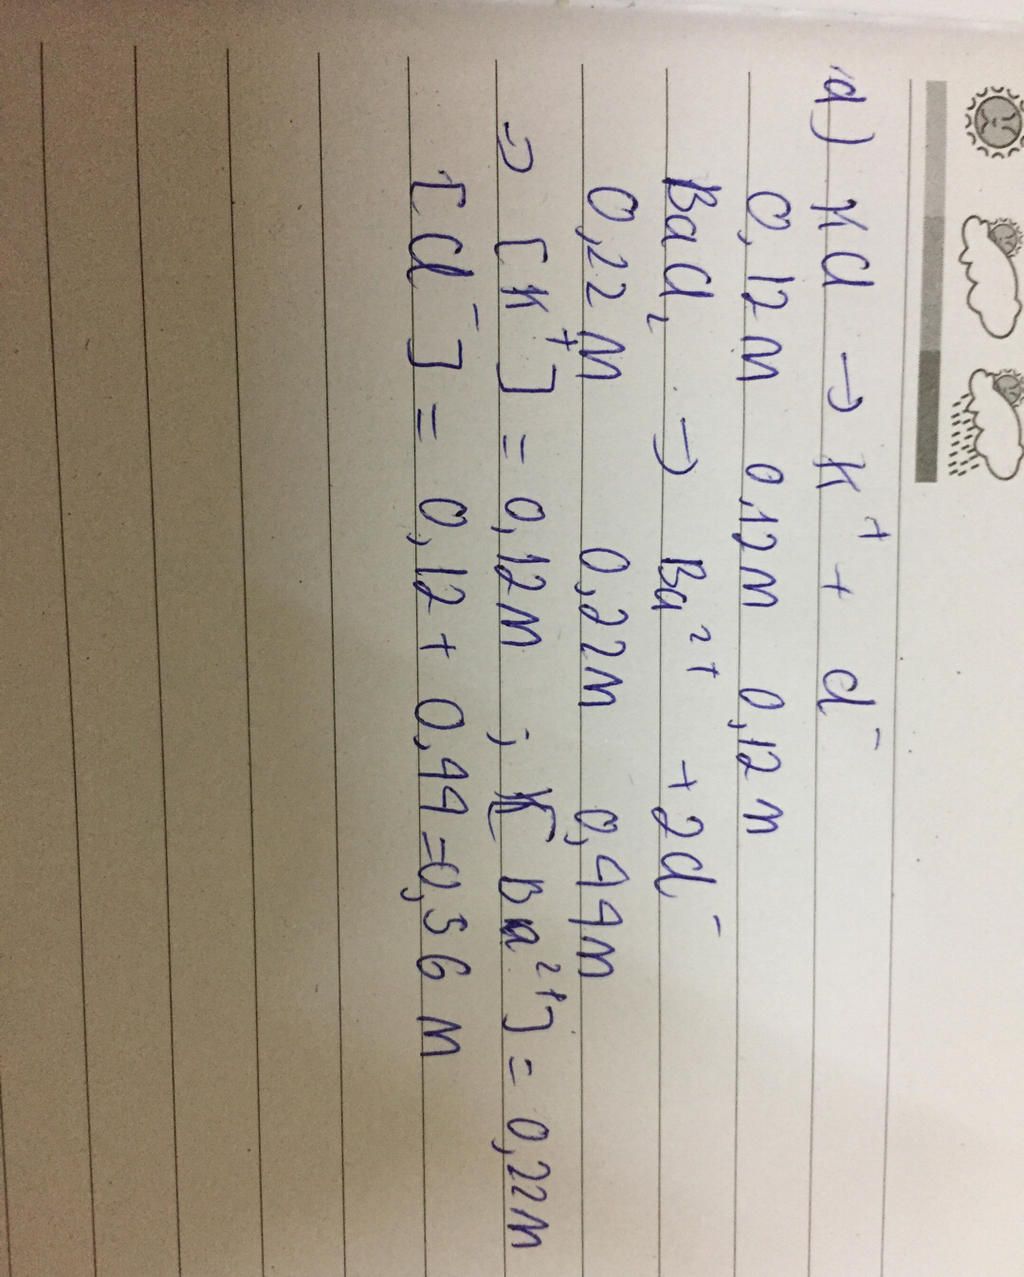 d) KCl → K⁺ + Cl⁻
0,12M 0,12M 0,12M
BaCl₂ → Ba²⁺ + 2Cl⁻
0,22M 0,22M 0,44M
⇒ [K⁺] = 0,12M ; [Ba²⁺] = 0,22M
[Cl⁻] = 0,12 + 0,44 = 0,56 M